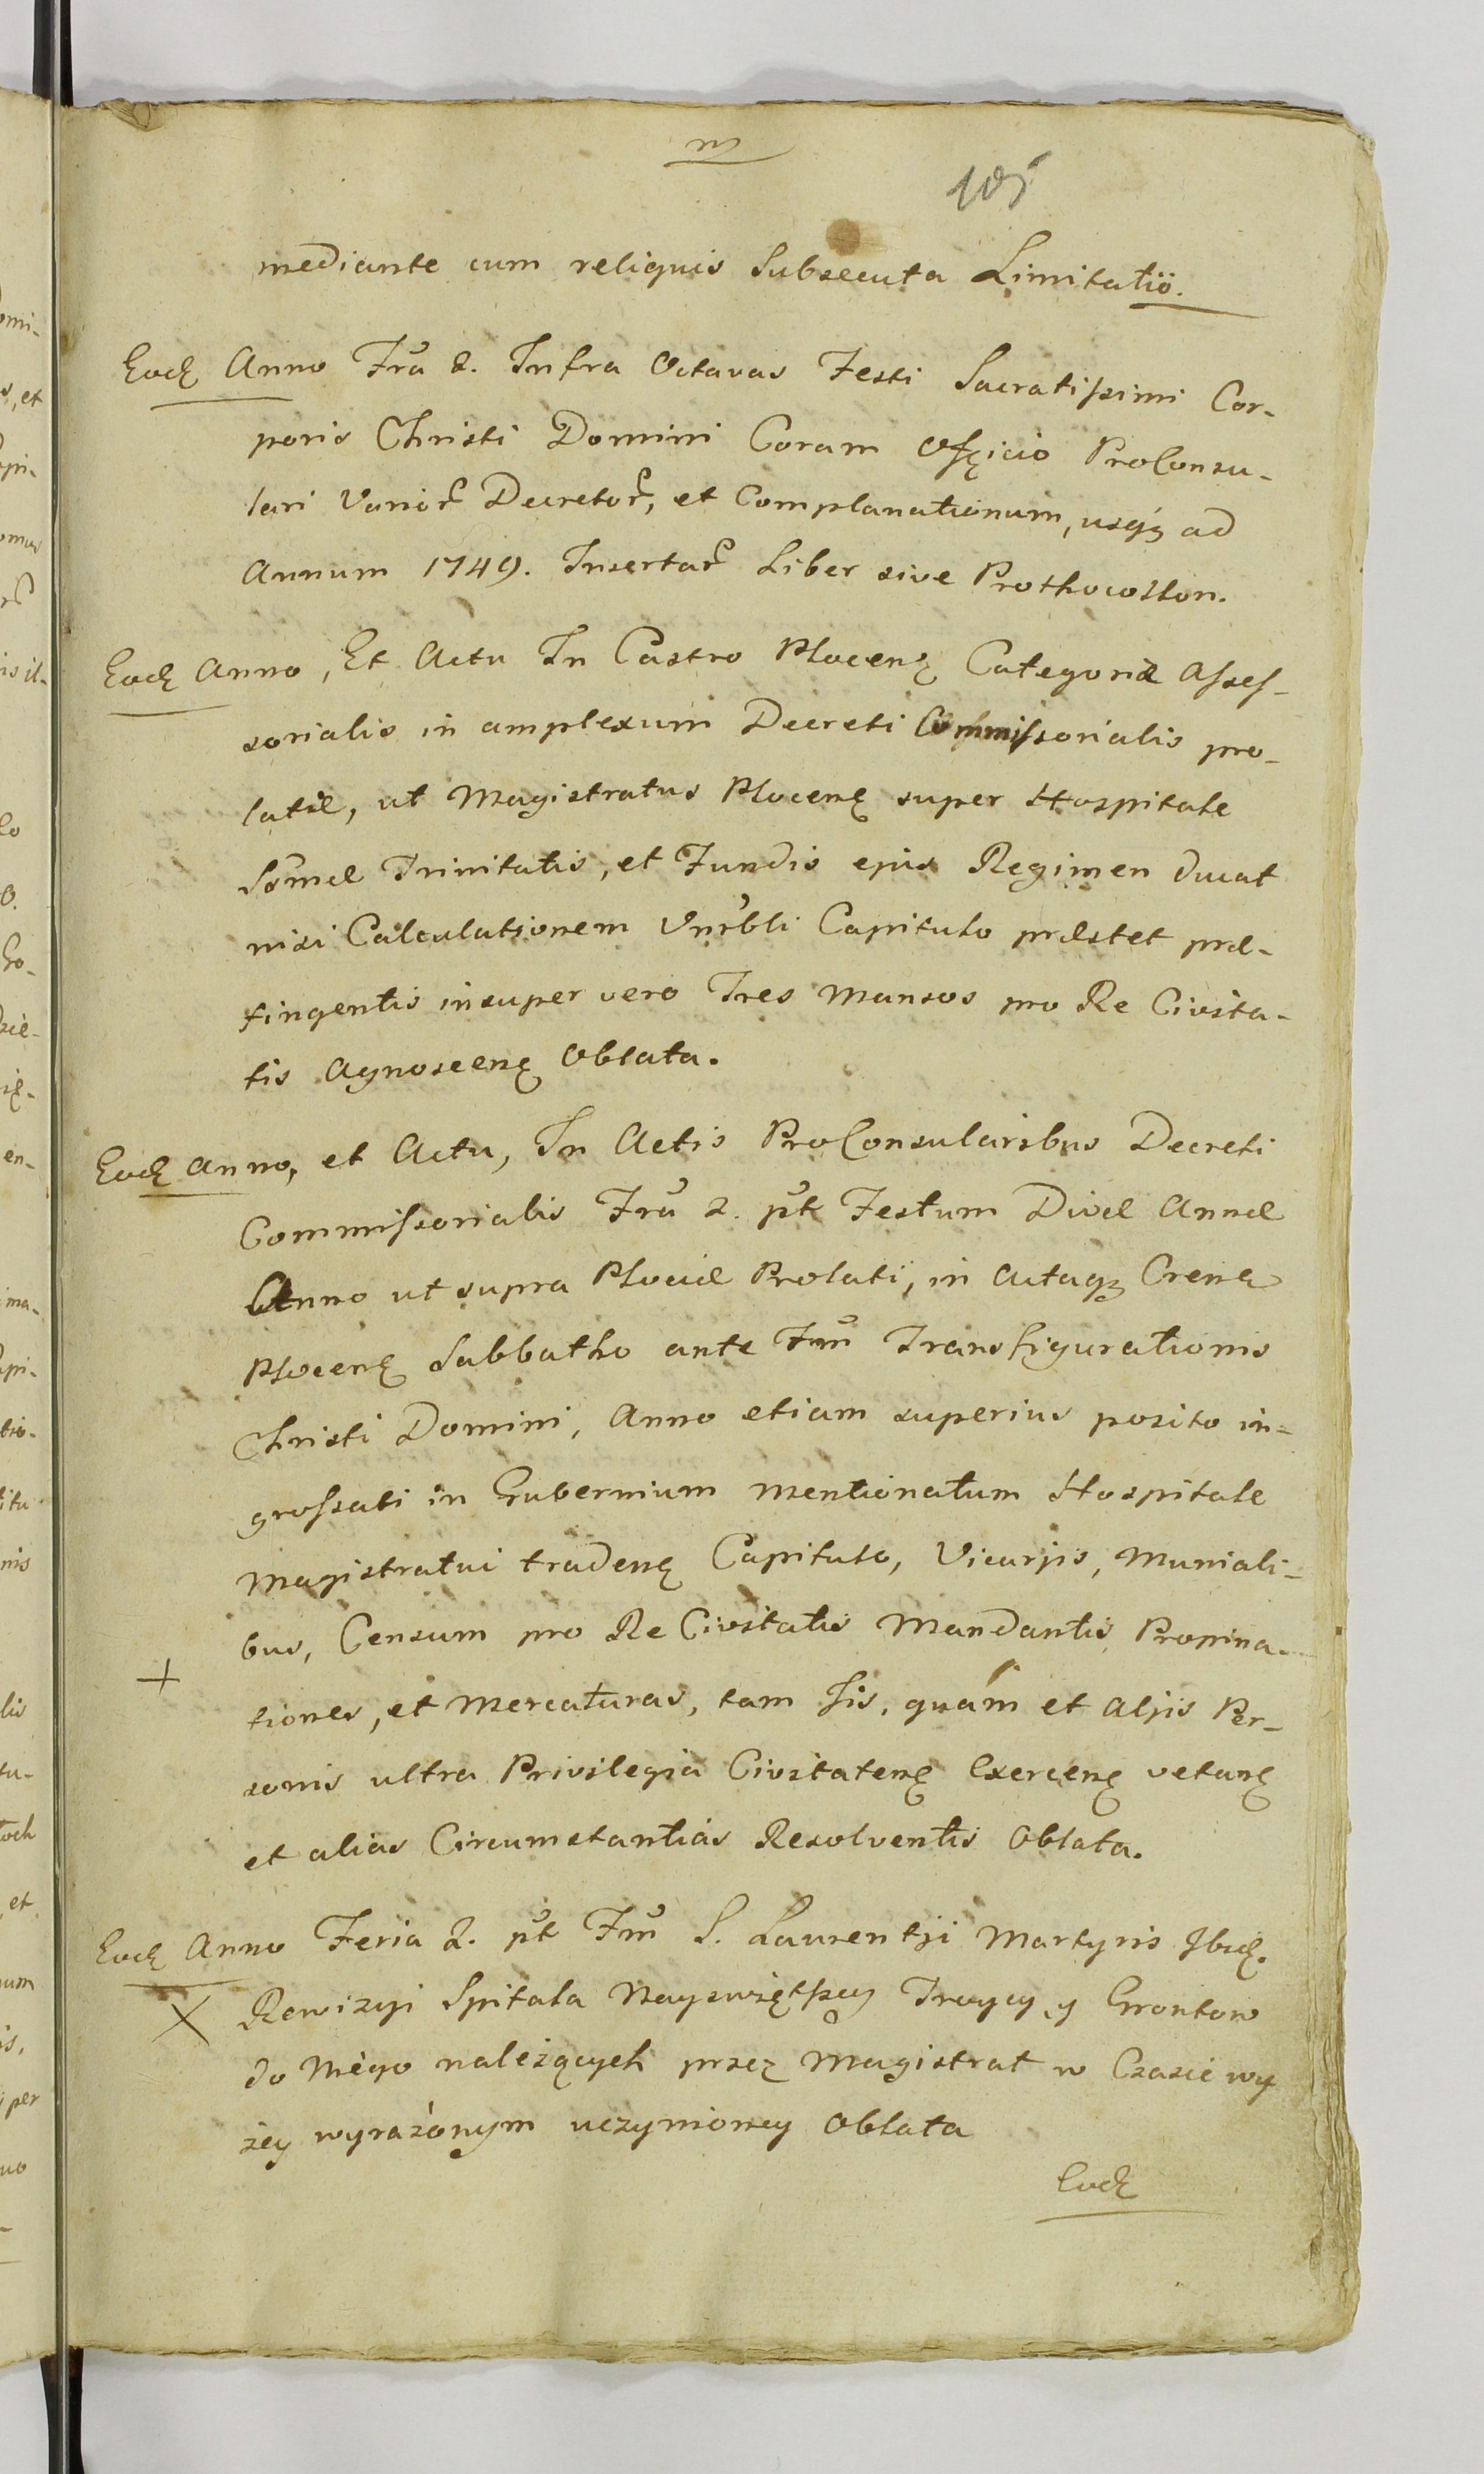 m
105
mediante cum reliquis Subsecuta Limitatio.
Eod Anno Fra 2. Infra Octavas Festi Sacratissimi Cor-
poris Christi Domini Coram Officio ProConsu-
lari Varior Decretor, et Complanationum, usq ad
Annum 1749. Insertar Liber sive Prothocollon.
Eod Anno, Et Actu In Castro Plocen Categoriæ Asses-
sorialis in amplexum Decreti Commissorialis pro-
latæ, ut Magistratus Plocen super Hospitale
Ssmæ Trinitatis, et Fundis ejus Regimen ducat
nisi Calculationem Vnrbli Capitulo præstet præ-
fingentis insuper vero Tres Mansos pro Re Civita-
tis Agnoscen Oblata.
Eod Anno, et Actu, In Actis ProConsularibus Decreti
Commissorialis Fra 2. pt Festum Divæ Annæ
Anno ut supra Plociæ Prolati, in Actaq Crena
Plocen Sabbatho ante Fm Transfigurationis
Christi Domini, Anno etiam superius posito in-
grossati in Gubernium mentionatum Hospitale
Magistratui traden Capitulo, Vicarjis, Muniali-
bus, Censum pro Re Civitatis Mandantis, Propina-
+
tiones, et Mercaturas, tam Jis, quám et Aljis Per-
sonis ultra Privilegia Civitaten Exercen vetan
et alias Circumstantias Resolventis Oblata.
Eod Anno Feria 2. pt Fm S. Laurentji Martyris Jbid.
X Rewizyi Spitala Nayswiętszey Troycy, y Grontow
do Niego należących przez Magistrat w Czasie wy
żey wyrażonym uczynioney Oblata
Eod